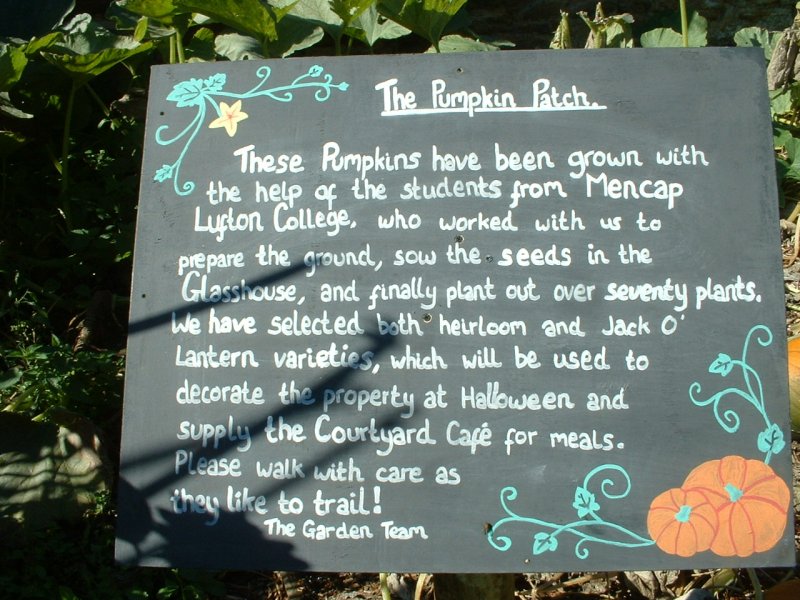 The Pumpkin Patch.
These Pumpkins have been grown with
the help of the students from Mencap
Lufton College, who worked with us to
prepare the ground, sow the seeds in the
Glasshouse, and finally plant out over seventy plants.
We have selected both heirloom and Jack O'
Lantern varieties, which will be used to
decorate the property at Halloween and
supply the Courtyard Café for meals.
Please walk with care as
they like to trail!
The Garden Team